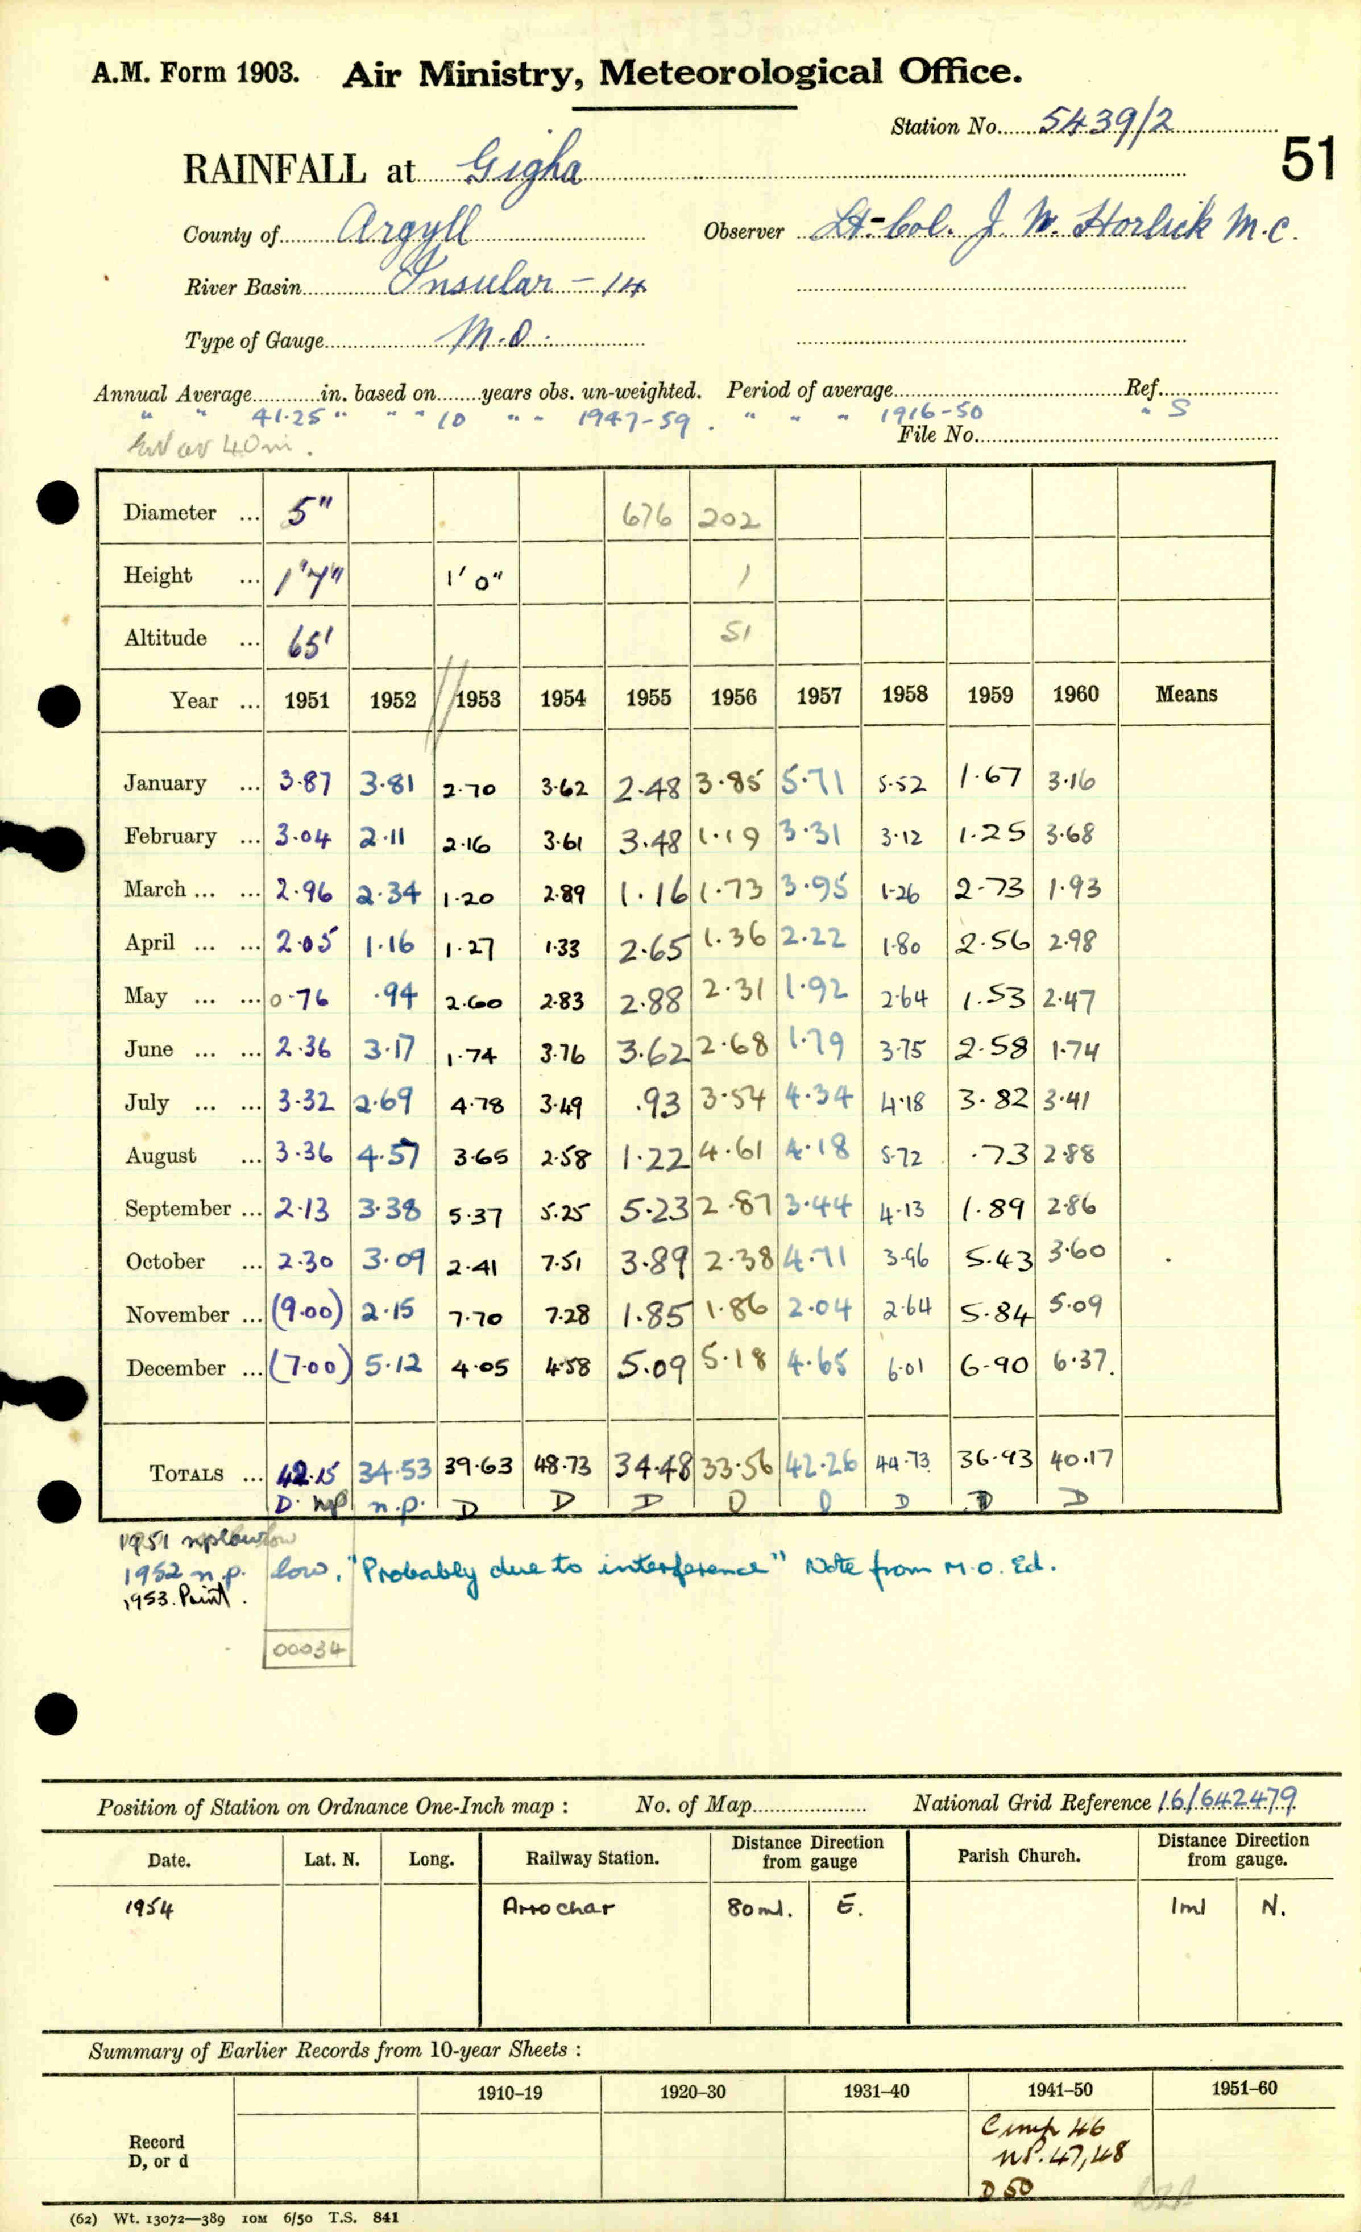 A.M. Form 1903. Air Ministry, Meteorological Office.
Station No. 5439/2
51
RAINFALL at Gigha
County of Argyll Observer Lt-Col. J. W. Horlick M.C.
River Basin Insular - 14
Type of Gauge M.O.
Annual Average in. based on years obs. un-weighted. Period of average Ref.
" " 41.25 " " " 10 " " 1947-59 . " " " 1916-50 " S
File No.
40 in.
Diameter ... 5" 676 202
Height ... 1'7" 1'0" 1
Altitude ... 65' 51
Year ... 1951 1952 1953 1954 1955 1956 1957 1958 1959 1960 Means
January ... 3.87 3.81 2.70 3.62 2.48 3.85 5.71 5.52 1.67 3.16
February ... 3.04 2.11 2.16 3.61 3.48 1.19 3.31 3.12 1.25 3.68
March ... ... 2.96 2.34 1.20 2.89 1.16 1.73 3.95 1.26 2.73 1.93
April ... ... 2.05 1.16 1.27 1.33 2.65 1.36 2.22 1.80 2.56 2.98
May ... ... 0.76 .94 2.60 2.83 2.88 2.31 1.92 2.64 1.53 2.47
June ... ... 2.36 3.17 1.74 3.76 3.62 2.68 1.79 3.75 2.58 1.74
July ... ... 3.32 2.69 4.78 3.49 .93 3.54 4.34 4.18 3.82 3.41
August ... 3.36 4.57 3.65 2.58 1.22 4.61 4.18 5.72 .73 2.88
September ... 2.13 3.38 5.37 5.25 5.23 2.87 3.44 4.13 1.89 2.86
October ... 2.30 3.09 2.41 7.51 3.89 2.38 4.71 3.96 5.43 3.60
November ... (9.00) 2.15 7.70 7.28 1.85 1.86 2.04 2.64 5.84 5.09
December ... (7.00) 5.12 4.05 4.58 5.09 5.18 4.65 6.01 6.90 6.37.
TOTALS ... 42.15 34.53 39.63 48.73 34.48 33.56 42.26 44.73 36.93 40.17
D. np n.p. D D D D D D D D
1951 np low
1952 n.p. low. "Probably due to interference" Note from M.O. Ed.
1953. Paint.
00034
Position of Station on Ordnance One-Inch map : No. of Map National Grid Reference 16/642479
Date. Lat. N. Long. Railway Station. Distance Direction from gauge Parish Church. Distance Direction from gauge.
1954 Arrochar 80 ml. E. 1ml N.
Summary of Earlier Records from 10-year Sheets :
1910-19 1920-30 1931-40 1941-50 1951-60
Record
D, or d
Comp 46
NP. 47, 48
D 50
(62) Wt. 13072—389 10M 6/50 T.S. 841